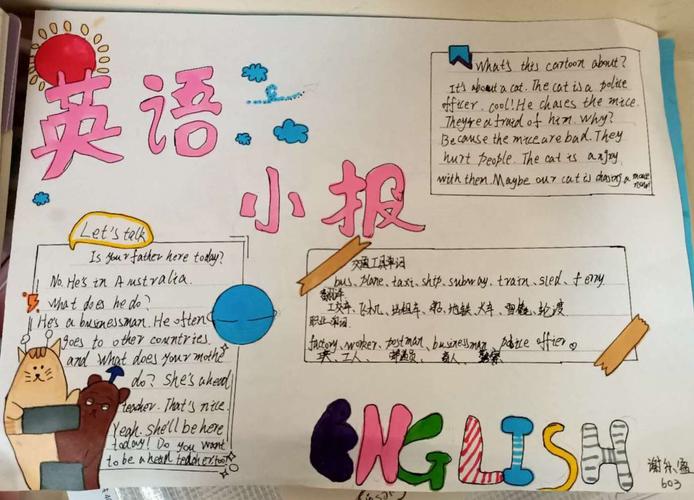 英语
小报
What's this cartoon about?
It's about a cat. The cat is a police
officer. cool! He chases the mice.
They're afraid of him. why?
Because the mice are bad. They
hurt people. The cat is angry
with them. Maybe our cat is chasing a mouse now!
Let's talk
Is your father here today?
No. He's in Australia.
what does he do?
He's a businessman. He often
goes to other countries.
and what does your mothe
do? She's a head
teacher. That's nice.
Yeah. she'll be here
today! Do you want
to be a head teacher, too?
交通工具单词
bus、plane、taxi、ship、subway、train、sled、ferry
公交车、飞机、出租车、船、地铁、火车、雪橇、轮渡
职业单词
factory、worker、postman、businessman、police officer。
工人、邮递员、商人、警察
ENGLISH
603